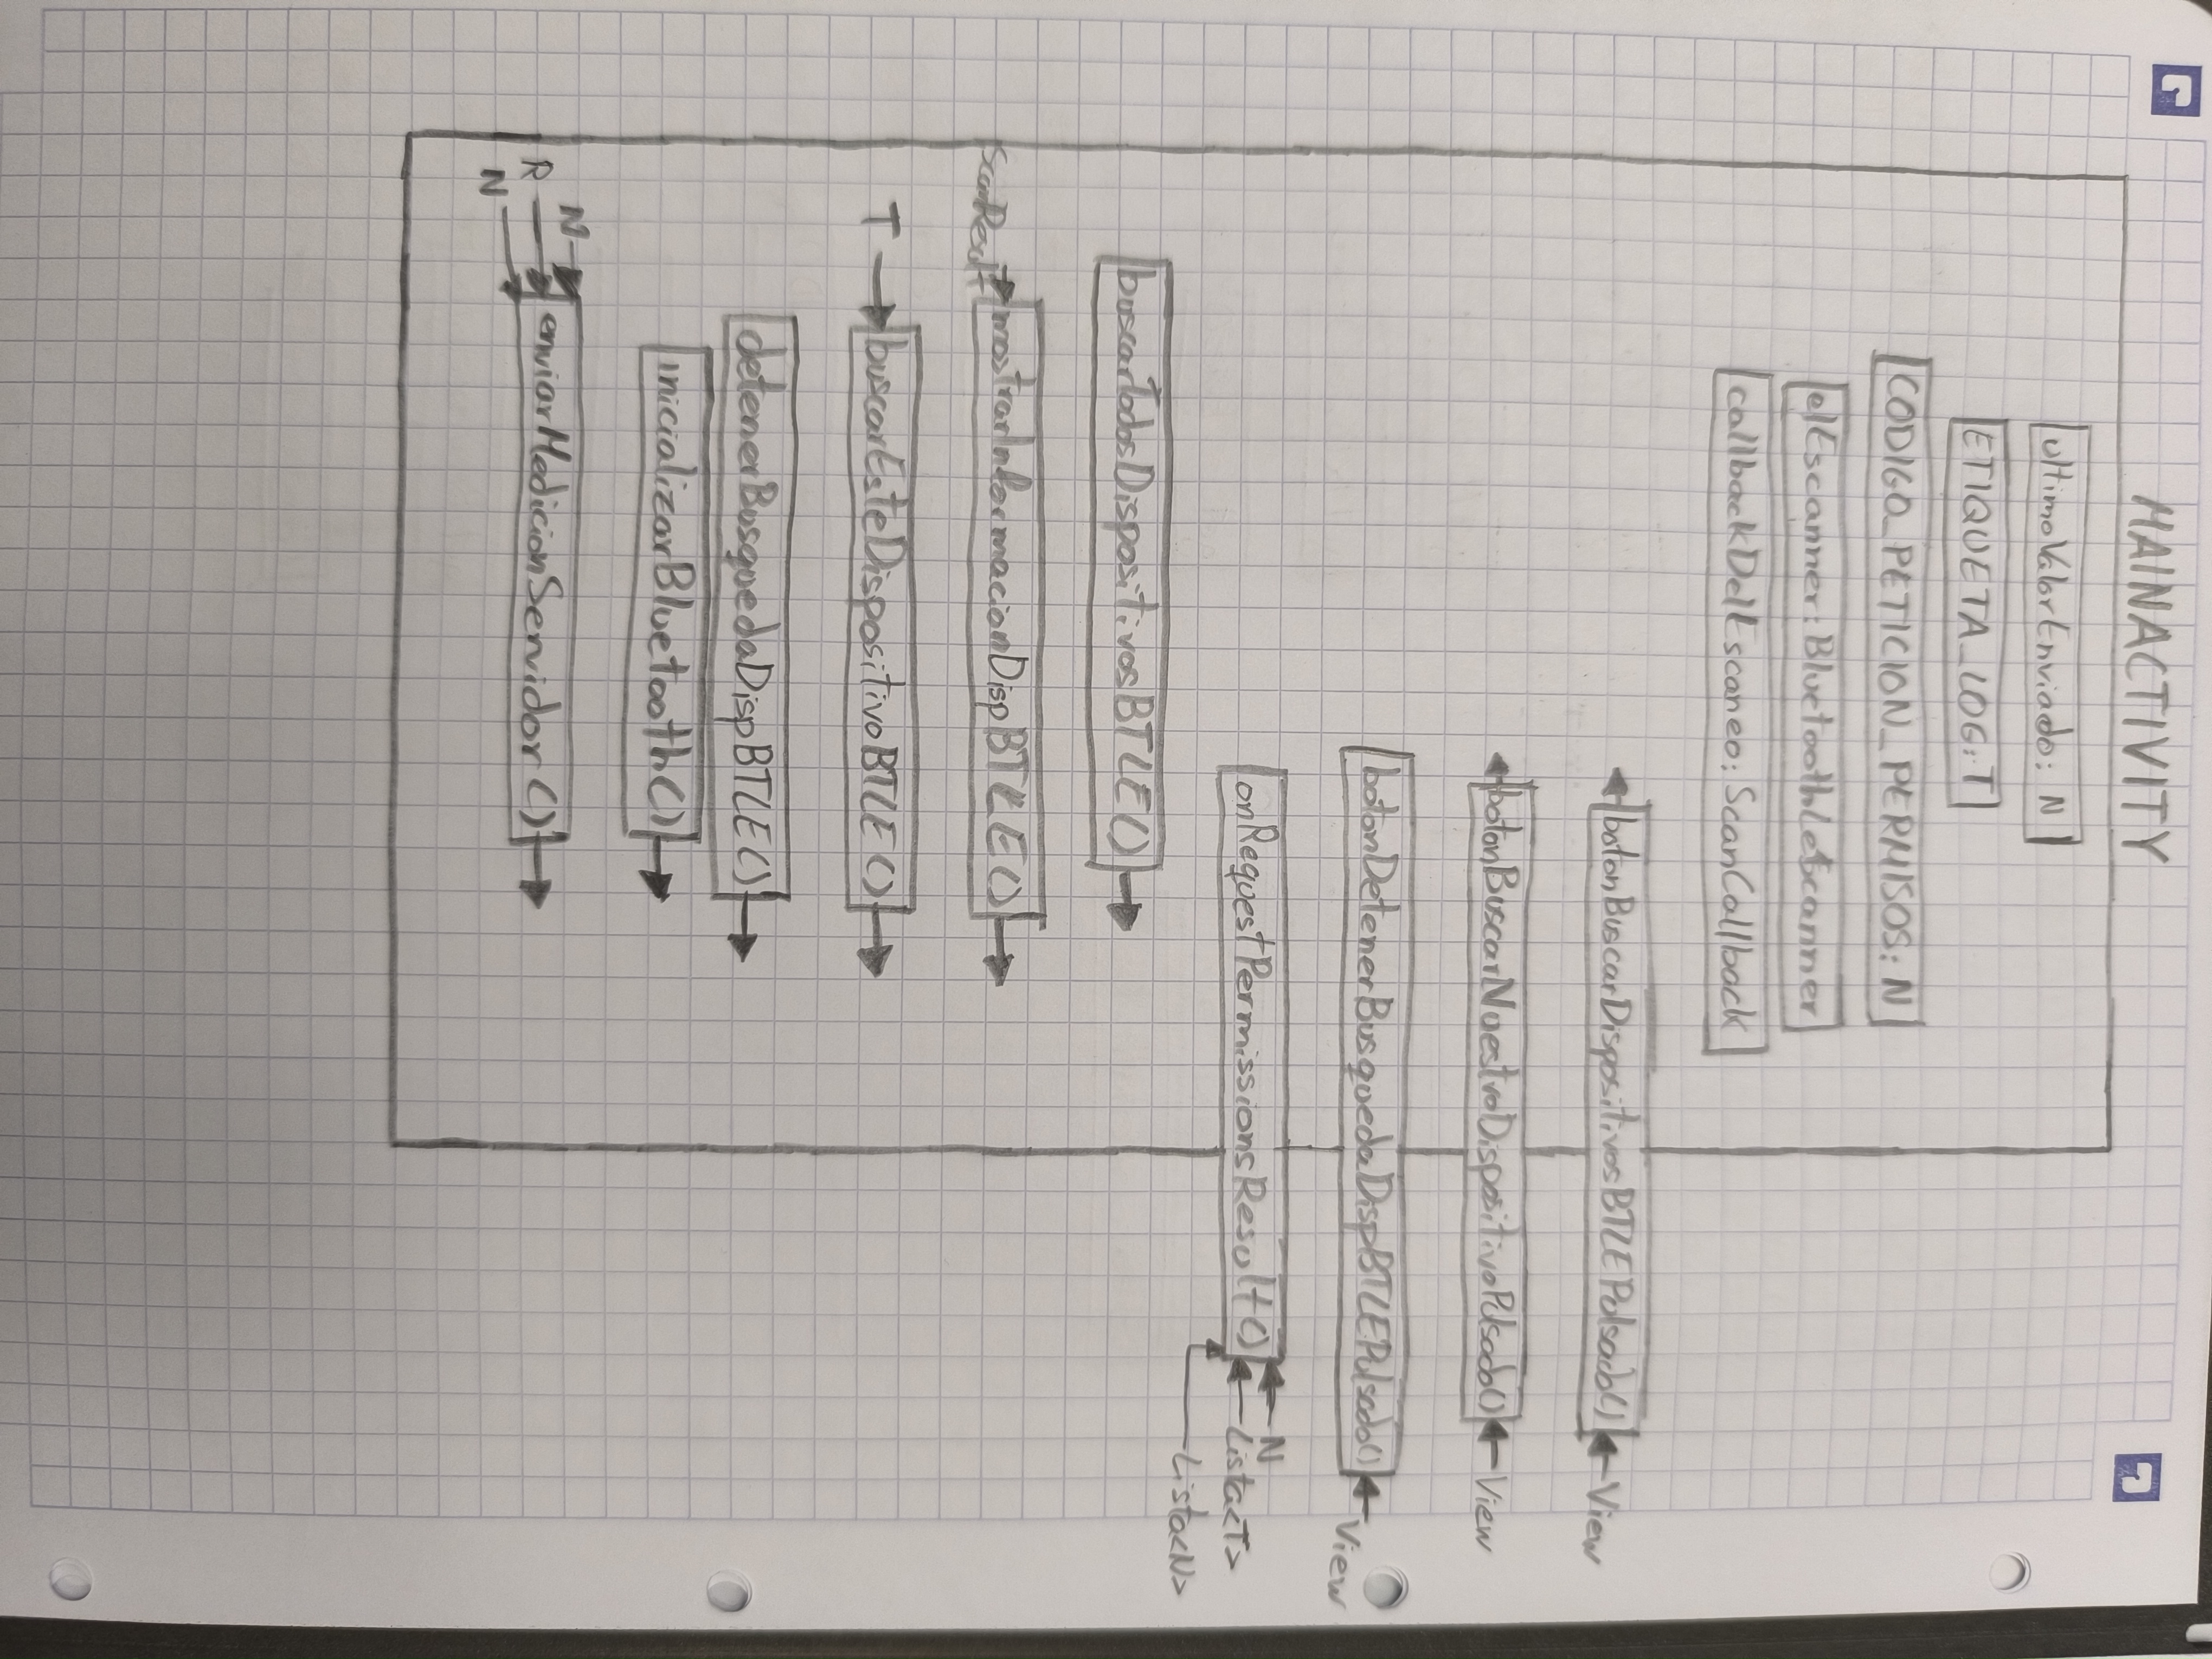 MAINACTIVITY
ultimoValorEnviado: N
ETIQUETA_LOG: T
CODIGO_PETICION_PERMISOS: N
elEscanner: BluetoothLeScanner
callbackDelEscaneo: ScanCallback
botonBuscarDispositivosBTLEPulsado() View
botonBuscarNuestroDispositivoPulsado() View
botonDetenerBusquedaDispBTLEPulsado() View
onRequestPermissionsResult() N
Lista<T>
Lista<N>
buscarTodosDispositivosBTLE()
ScanResult mostrarInformacionDispBTLE()
T buscarEsteDispositivoBTLE()
detenerBusquedaDispBTLE()
inicializarBluetooth()
N
R enviarMedicionServidor()
N